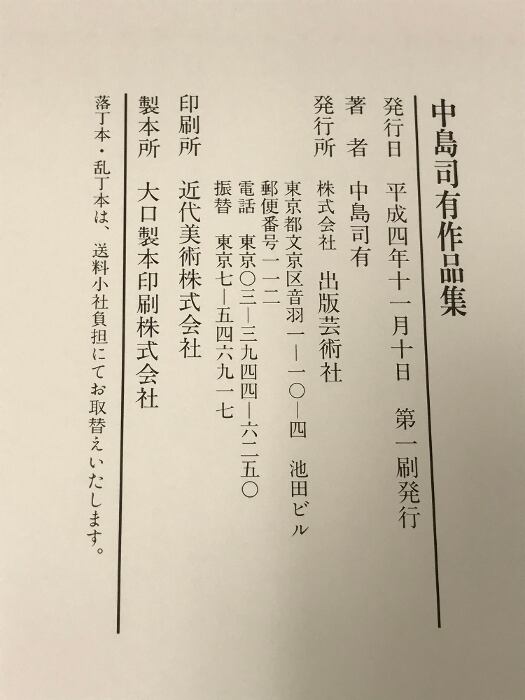 中島司有作品集
発行日　平成四年十一月十日　第一刷発行
著　者　中島司有
発行所　株式会社　出版芸術社
東京都文京区音羽一—一〇—四　池田ビル
郵便番号一一二
電話　東京〇三—三九四四—六二五〇
振替　東京七—五四六九一七
印刷所　近代美術株式会社
製本所　大口製本印刷株式会社
落丁本・乱丁本は、送料小社負担にてお取替えいたします。